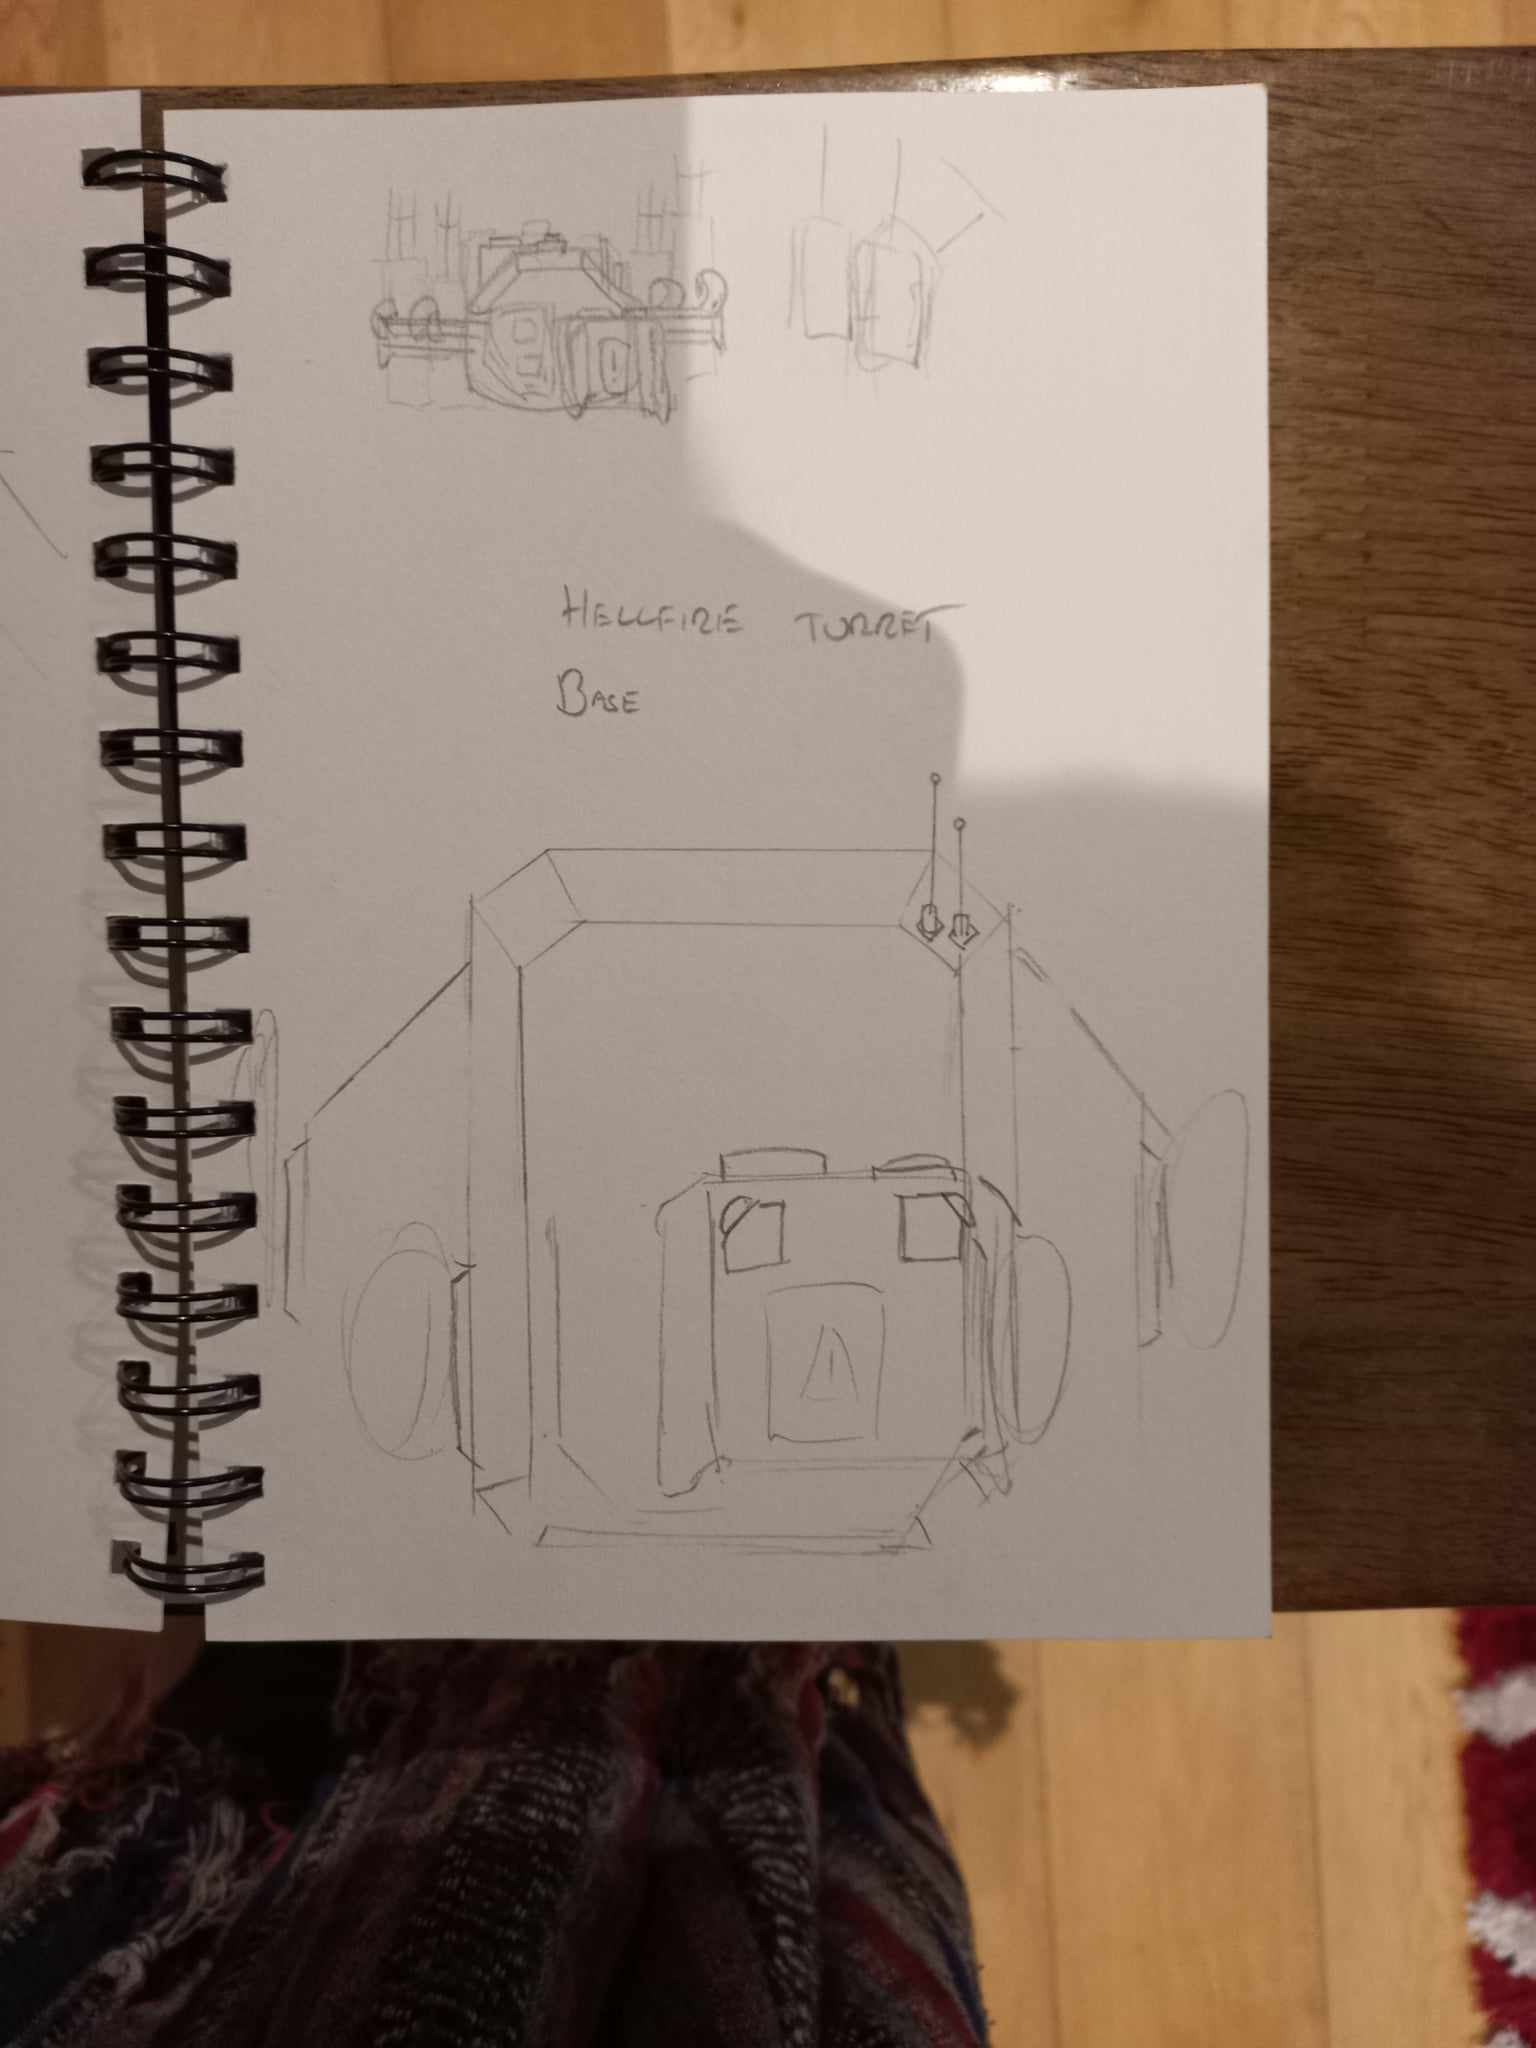 HELLFIRE TURRET
BASE